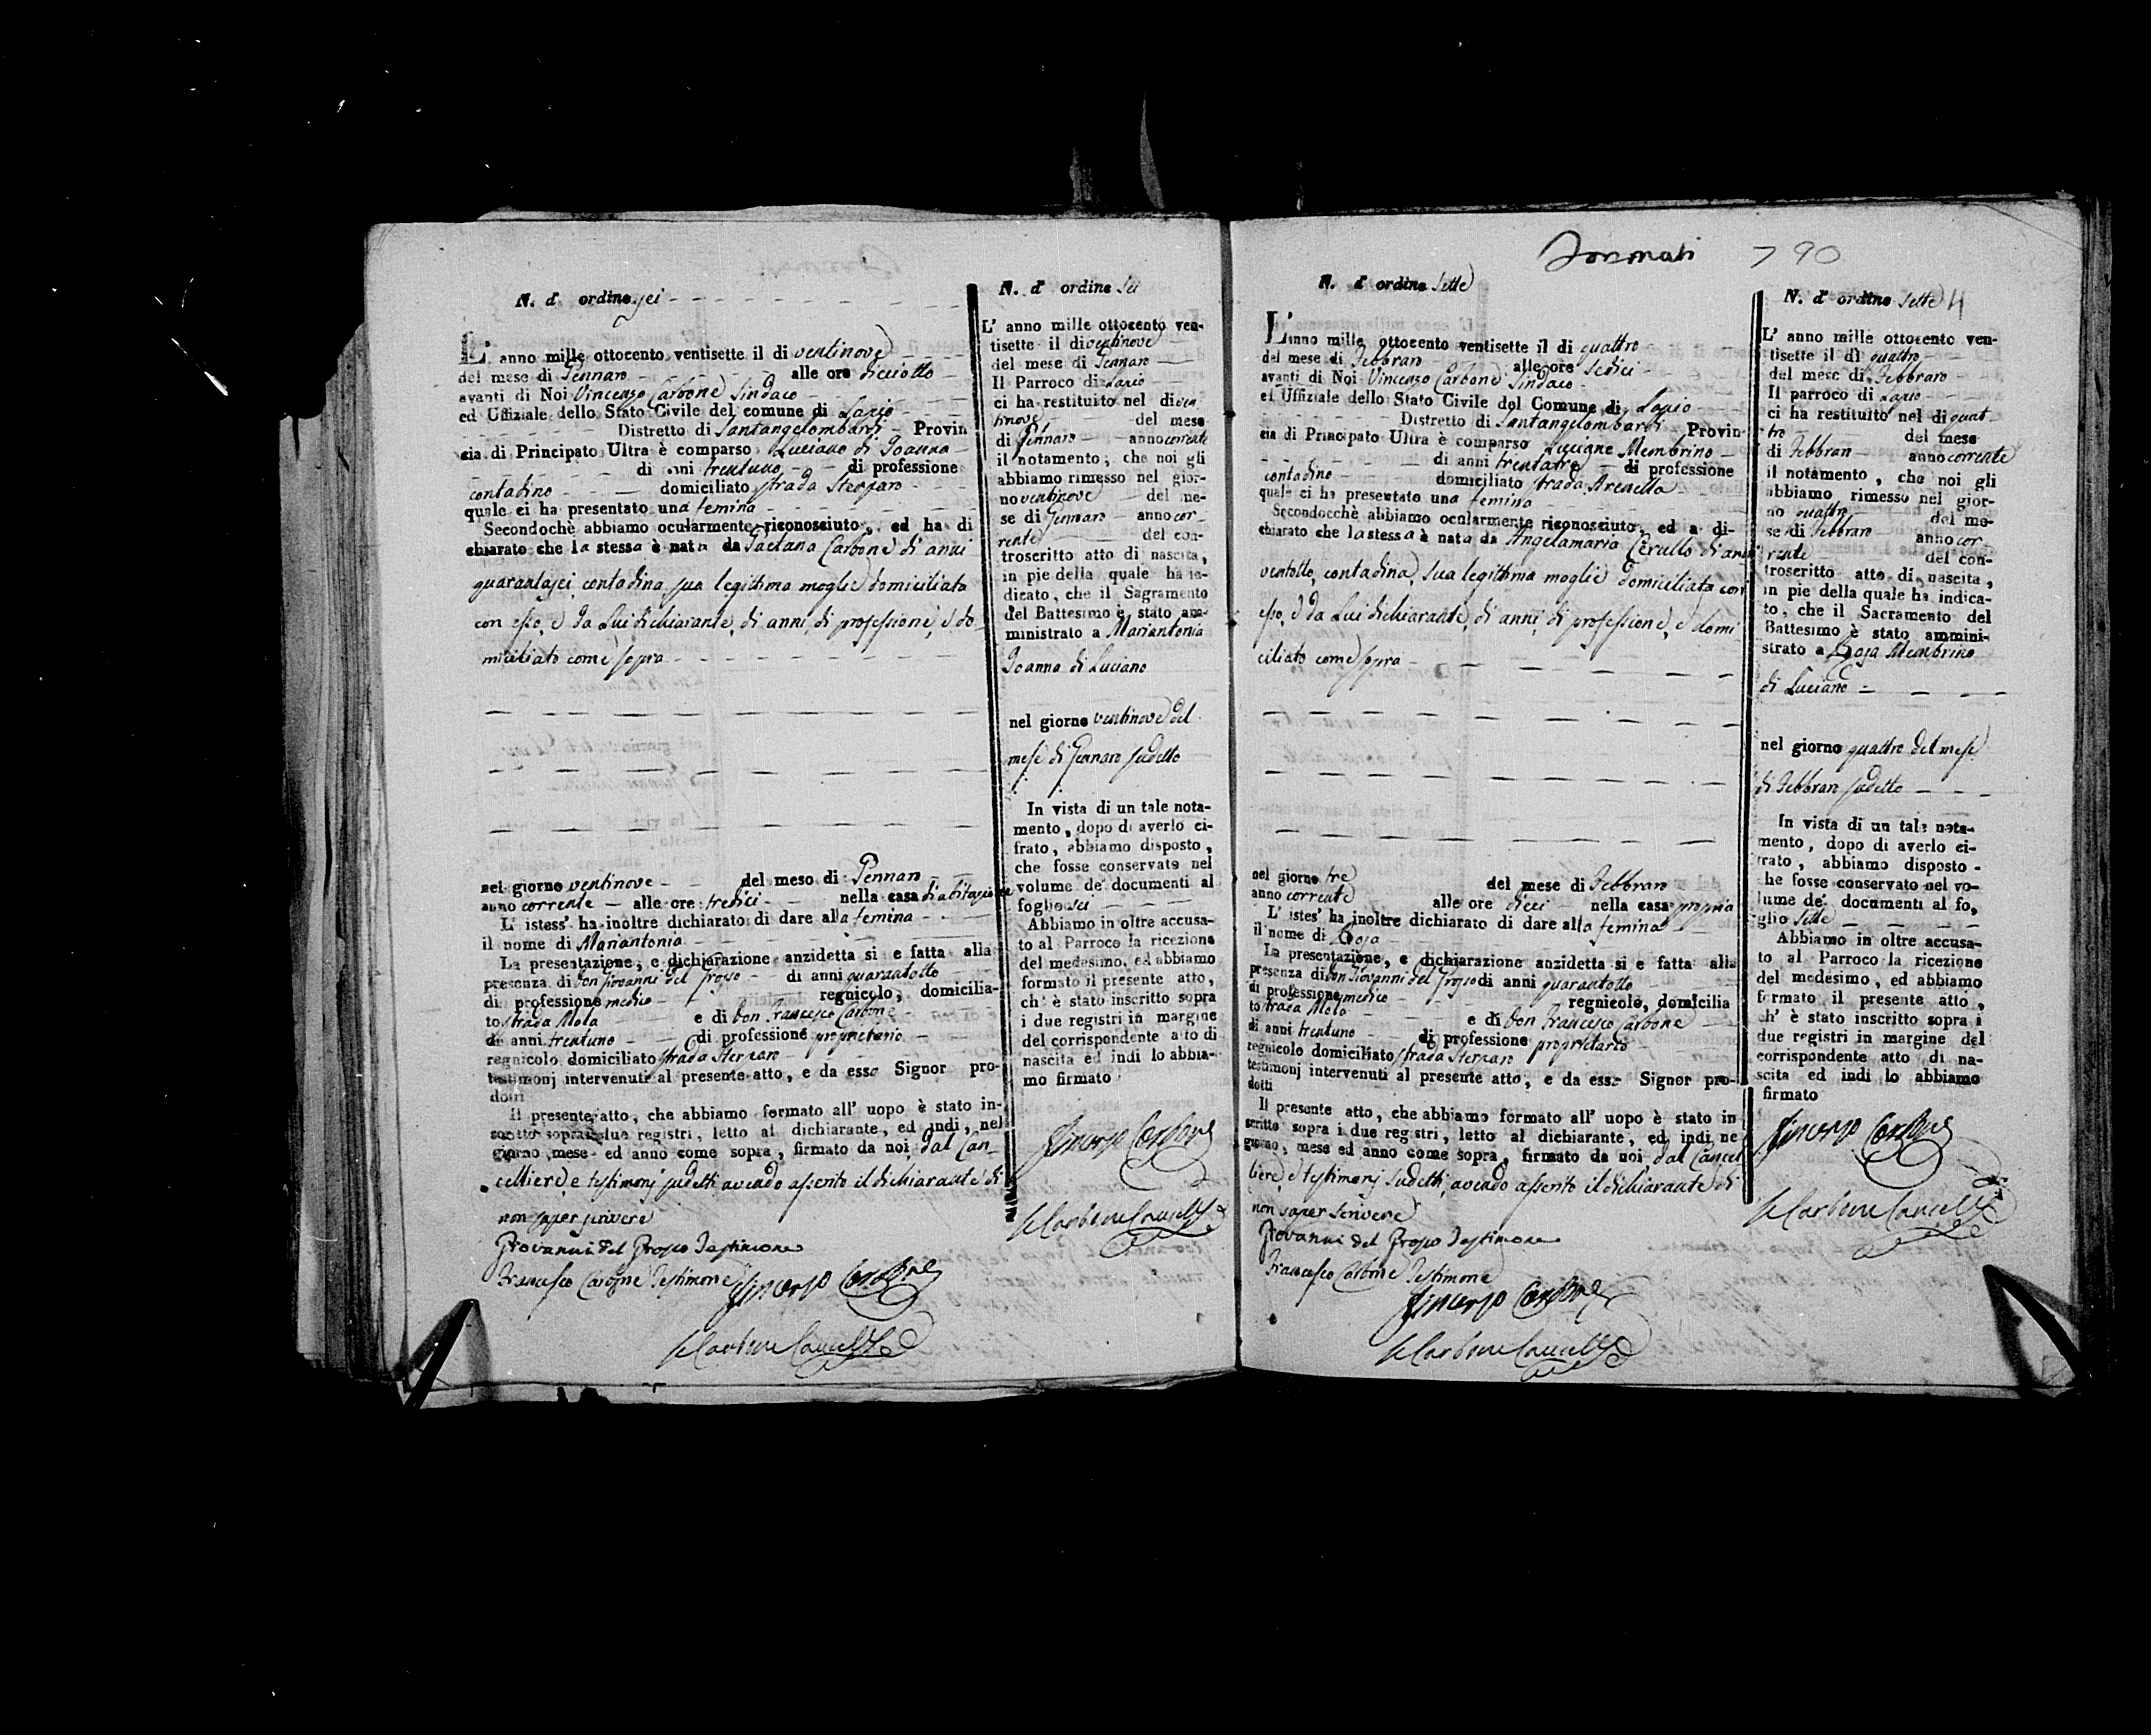 N. d' ordine sei
L' anno mille ottocento ventisette il di ventinove
del mese di Gennaro alle ore dieciotto
avanti di Noi Vincenzo Carbone Sindaco
ed Uffiziale dello Stato Civile del comune di Lapio
Distretto di Santangelombardi Provin
cia di Principato Ultra è comparso Luciano di Joanna
di anni trentuno di professione
contadino domiciliato strada Sterparo
quale ci ha presentato una femina
Secondochè abbiamo ocularmente riconosciuto, ed ha di
chiarato che la stessa è nata da Gaetana Carbone di anni
quarantasei contadina, sua legittima moglie domiciliata
con esso, e da Lui dichiarante, di anni, di professione, e do-
miciliato come sopra
nel giorno ventinove del mese di Gennaro
anno corrente alle ore tredici nella casa di abitazione
L' istess' ha inoltre dichiarato di dare alla femina
il nome di Mariantonia
La presentazione, e dichiarazione anzidetta si e fatta alla
presenza di Don Giovanni del Grosso di anni quarantotto
di professione medico regnicolo, domicilia-
to strada Mola e di Don Francesco Carbone
di anni trentuno di professione proprietario
regnicolo domiciliato strada Sterparo
testimonj intervenuti al presente atto, e da esso Signor pro-
dotti
Il presente atto, che abbiamo formato all' uopo è stato in-
scritto sopra i due registri, letto al dichiarante, ed indi, nel
giorno, mese ed anno come sopra, firmato da noi, dal Can-
celliere, e testimonj sudetti avendo asserito il dichiarante di
non saper scrivere
Giovanni del Grosso Testimone
Francesco Carbone Testimone Vincenzo Carbone
Carbone Cancell.e
N. d' ordine sei
L' anno mille ottocento ven-
tisette il di ventinove
del mese di Gennaro
Il Parroco di Lapio
ci ha restituito nel di ven
tinove del mese
di Gennaro anno corrente
il notamento, che noi gli
abbiamo rimesso nel gior-
no ventinove del me-
se di Gennaro anno cor-
rente del con-
troscritto atto di nascita,
in pie della quale ha in-
dicato, che il Sagramento
del Battesimo è stato am-
ministrato a Mariantonia
Joanna di Luciano
nel giorno ventinove del
mese di Gennaro sudetto
In vista di un tale nota-
mento, dopo di averlo ci-
frato, abbiamo disposto,
che fosse conservato nel
volume de' documenti al
foglio sei
Abbiamo in oltre accusa-
to al Parroco la ricezione
del medesimo, ed abbiamo
formato il presente atto,
ch' è stato inscritto sopra
i due registri in margine
del corrispondente atto di
nascita ed indi lo abbia-
mo firmato
Vincenzo Carbone
Carbone Cancell.e
790
N. d' ordine sette
L' anno mille ottocento ventisette il di quattro
del mese di Febbraro alle ore sedici
avanti di Noi Vincenzo Carbone Sindaco
ed Uffiziale dello Stato Civile del Comune di Lapio
Distretto di Santangelombardi Provin-
cia di Principato Ultra è comparso Luciano Membrino
di anni trentatre di professione
contadino domiciliato strada Arenella
quale ci ha presentato una femina
Secondocchè abbiamo ocularmente riconosciuto, ed a di-
chiarato che la stessa è nata da Angelamaria Cerullo di anni
ventotto, contadina, sua legittima moglie domiciliata con
esso, e da Lui dichiarante, di anni, di professione, e domi
ciliato come sopra
nel giorno tre del mese di Febbraro
anno corrente alle ore dieci nella casa propria
L' istes' ha inoltre dichiarato di dare alla femina
il nome di Rosa
La presentazione, e dichiarazione anzidetta si e fatta alla
presenza di Don Giovanni del Grosso di anni quarantotto
di professione medico regnicolo, domicilia
to strada Mola e di Don Francesco Carbone
di anni trentuno di professione proprietario
regnicolo domiciliato strada Sterparo
testimonj intervenuti al presente atto, e da esso Signor pro-
dotti
Il presente atto, che abbiamo formato all' uopo è stato in
scritto sopra i due registri, letto al dichiarante, ed indi ne
giorno, mese ed anno come sopra, firmato da noi dal Cancel
liere, e testimonj sudetti, avendo asserito il dichiarante di
non saper scrivere
Giovanni del Grosso Testimone
Francesco Carbone Testimone
Vincenzo Carbone
Carbone Cancell.e
N. d' ordine sette 4
L' anno mille ottocento ven-
tisette il di quattro
del mese di Febbraro
Il parroco di Lapio
ci ha restituito nel di quat-
tro del mese
di Febbraro anno corrente
il notamento, che noi gli
abbiamo rimesso nel gior-
no quattro del me-
se di Febbraro anno cor-
rente del con-
troscritto atto di nascita,
in pie della quale ha indica-
to, che il Sacramento del
Battesimo è stato ammini-
strato a Rosa Membrino
di Luciano
nel giorno quattro del mese
di Febbraro sudetto
In vista di un tale nota-
mento, dopo di averlo ci-
frato, abbiamo disposto
che fosse conservato nel vo-
lume de' documenti al fo-
glio sette
Abbiamo in oltre accusa-
to al Parroco la ricezione
del medesimo, ed abbiamo
formato il presente atto,
ch' è stato inscritto sopra i
due registri in margine del
corrispondente atto di na-
scita ed indi lo abbiamo
firmato
Vincenzo Carbone
Carbone Cancell.e